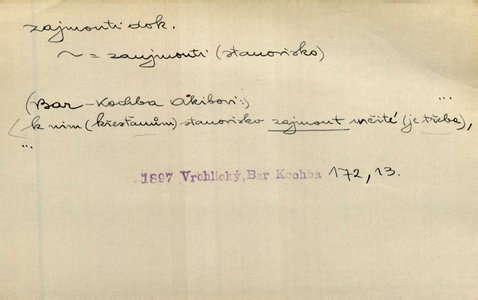 zajmouti dok.
~ = zaujmouti (stanovisko)
(Bar-Kochba Akibovi:) ...
k nim (křesťanům) stanovisko zajmout určité (je třeba),
...
1897 Vrchlický, Bar Kochba 172, 13.